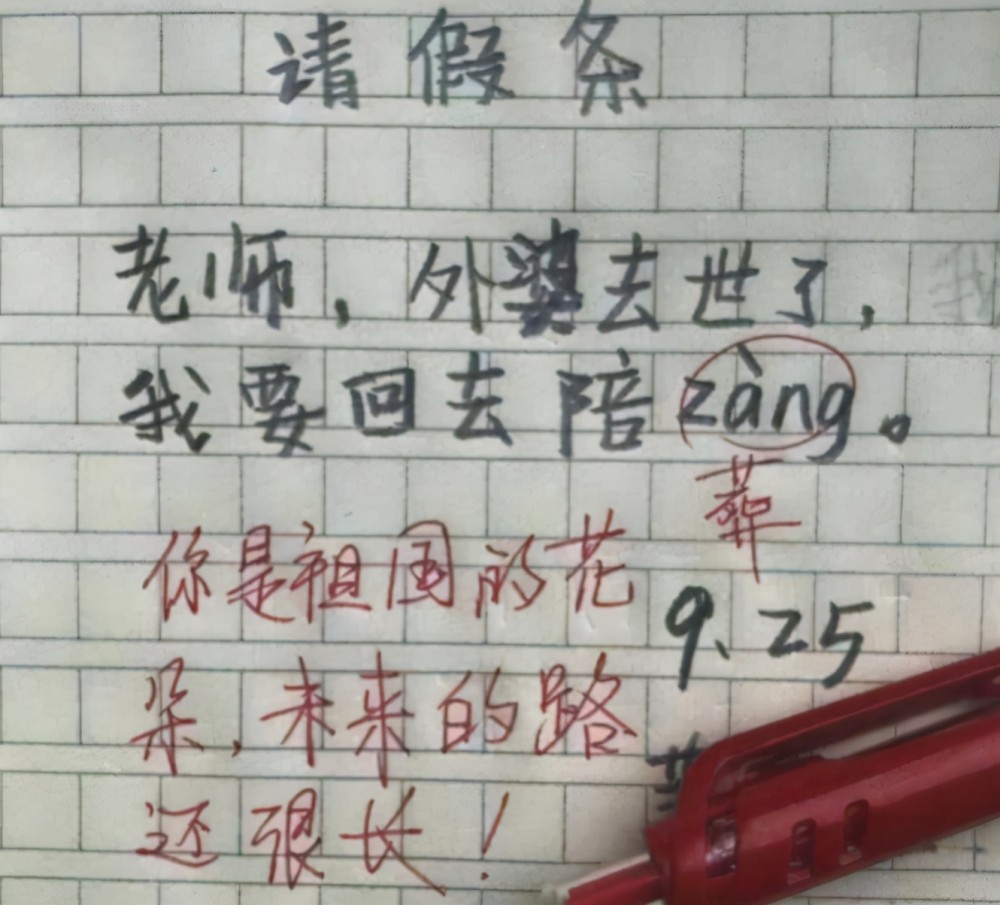 请假条
老师，外婆去世了，
我要回去陪zàng。
葬
你是祖国的花
9.25
朵，未来的路
还很长！